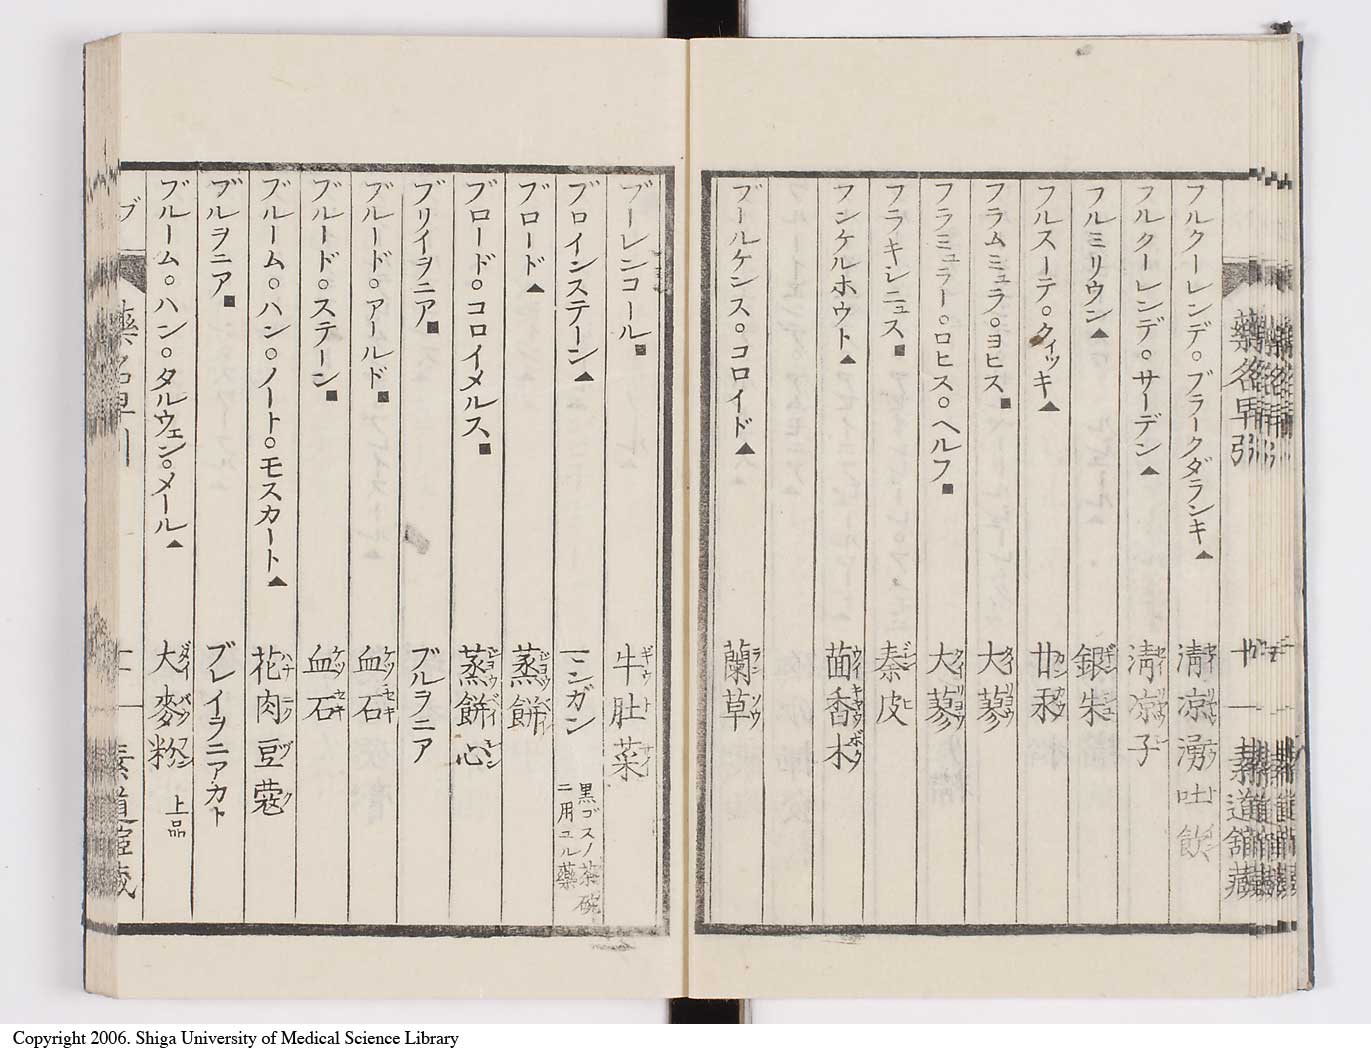 藥名早引
フルクーレンデ○ブラークダランキ▲ 淸凉湧吐飮
フルクーレンデ○サーデン▲ 淸凉子
フルミリウン▲ 銀朱
フルスーテ○クイッキ▲ 甘汞
フラムミュラ○ヨヒス■ 大蓼
フラミュラー○ロヒス○ヘルフ■ 大蓼
フラキシニュス■ 秦皮
フンケルホウト▲ 茴香木
ブールケンス○コロイド▲ 蘭草
ブーレンコール■ 牛肚菜
ブロインステーン▲ 一ンガン 黒ゴスノ茶碗ニ用ユル藥
ブロード▲ 蒸餅
ブロード○コロイメルス■ 蒸餅心
ブリイヲニア■ ブルヲニア
ブルード○アールド■ 血石
ブルード○ステーン■ 血石
ブルーム○ハン○ノート○モスカート▲ 花肉豆蔲
ブルヲニア■ ブレイヲニアカト
ブルーム○ハン○タルウェン○メール▲ 大麥粉 上品
ブ
Copyright 2006. Shiga University of Medical Science Library